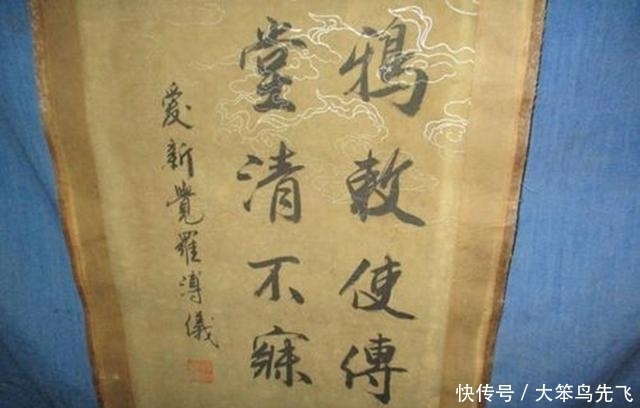 鴉敕使傳
堂清不寐
愛新覺羅溥儀
快传号/大笨鸟先飞